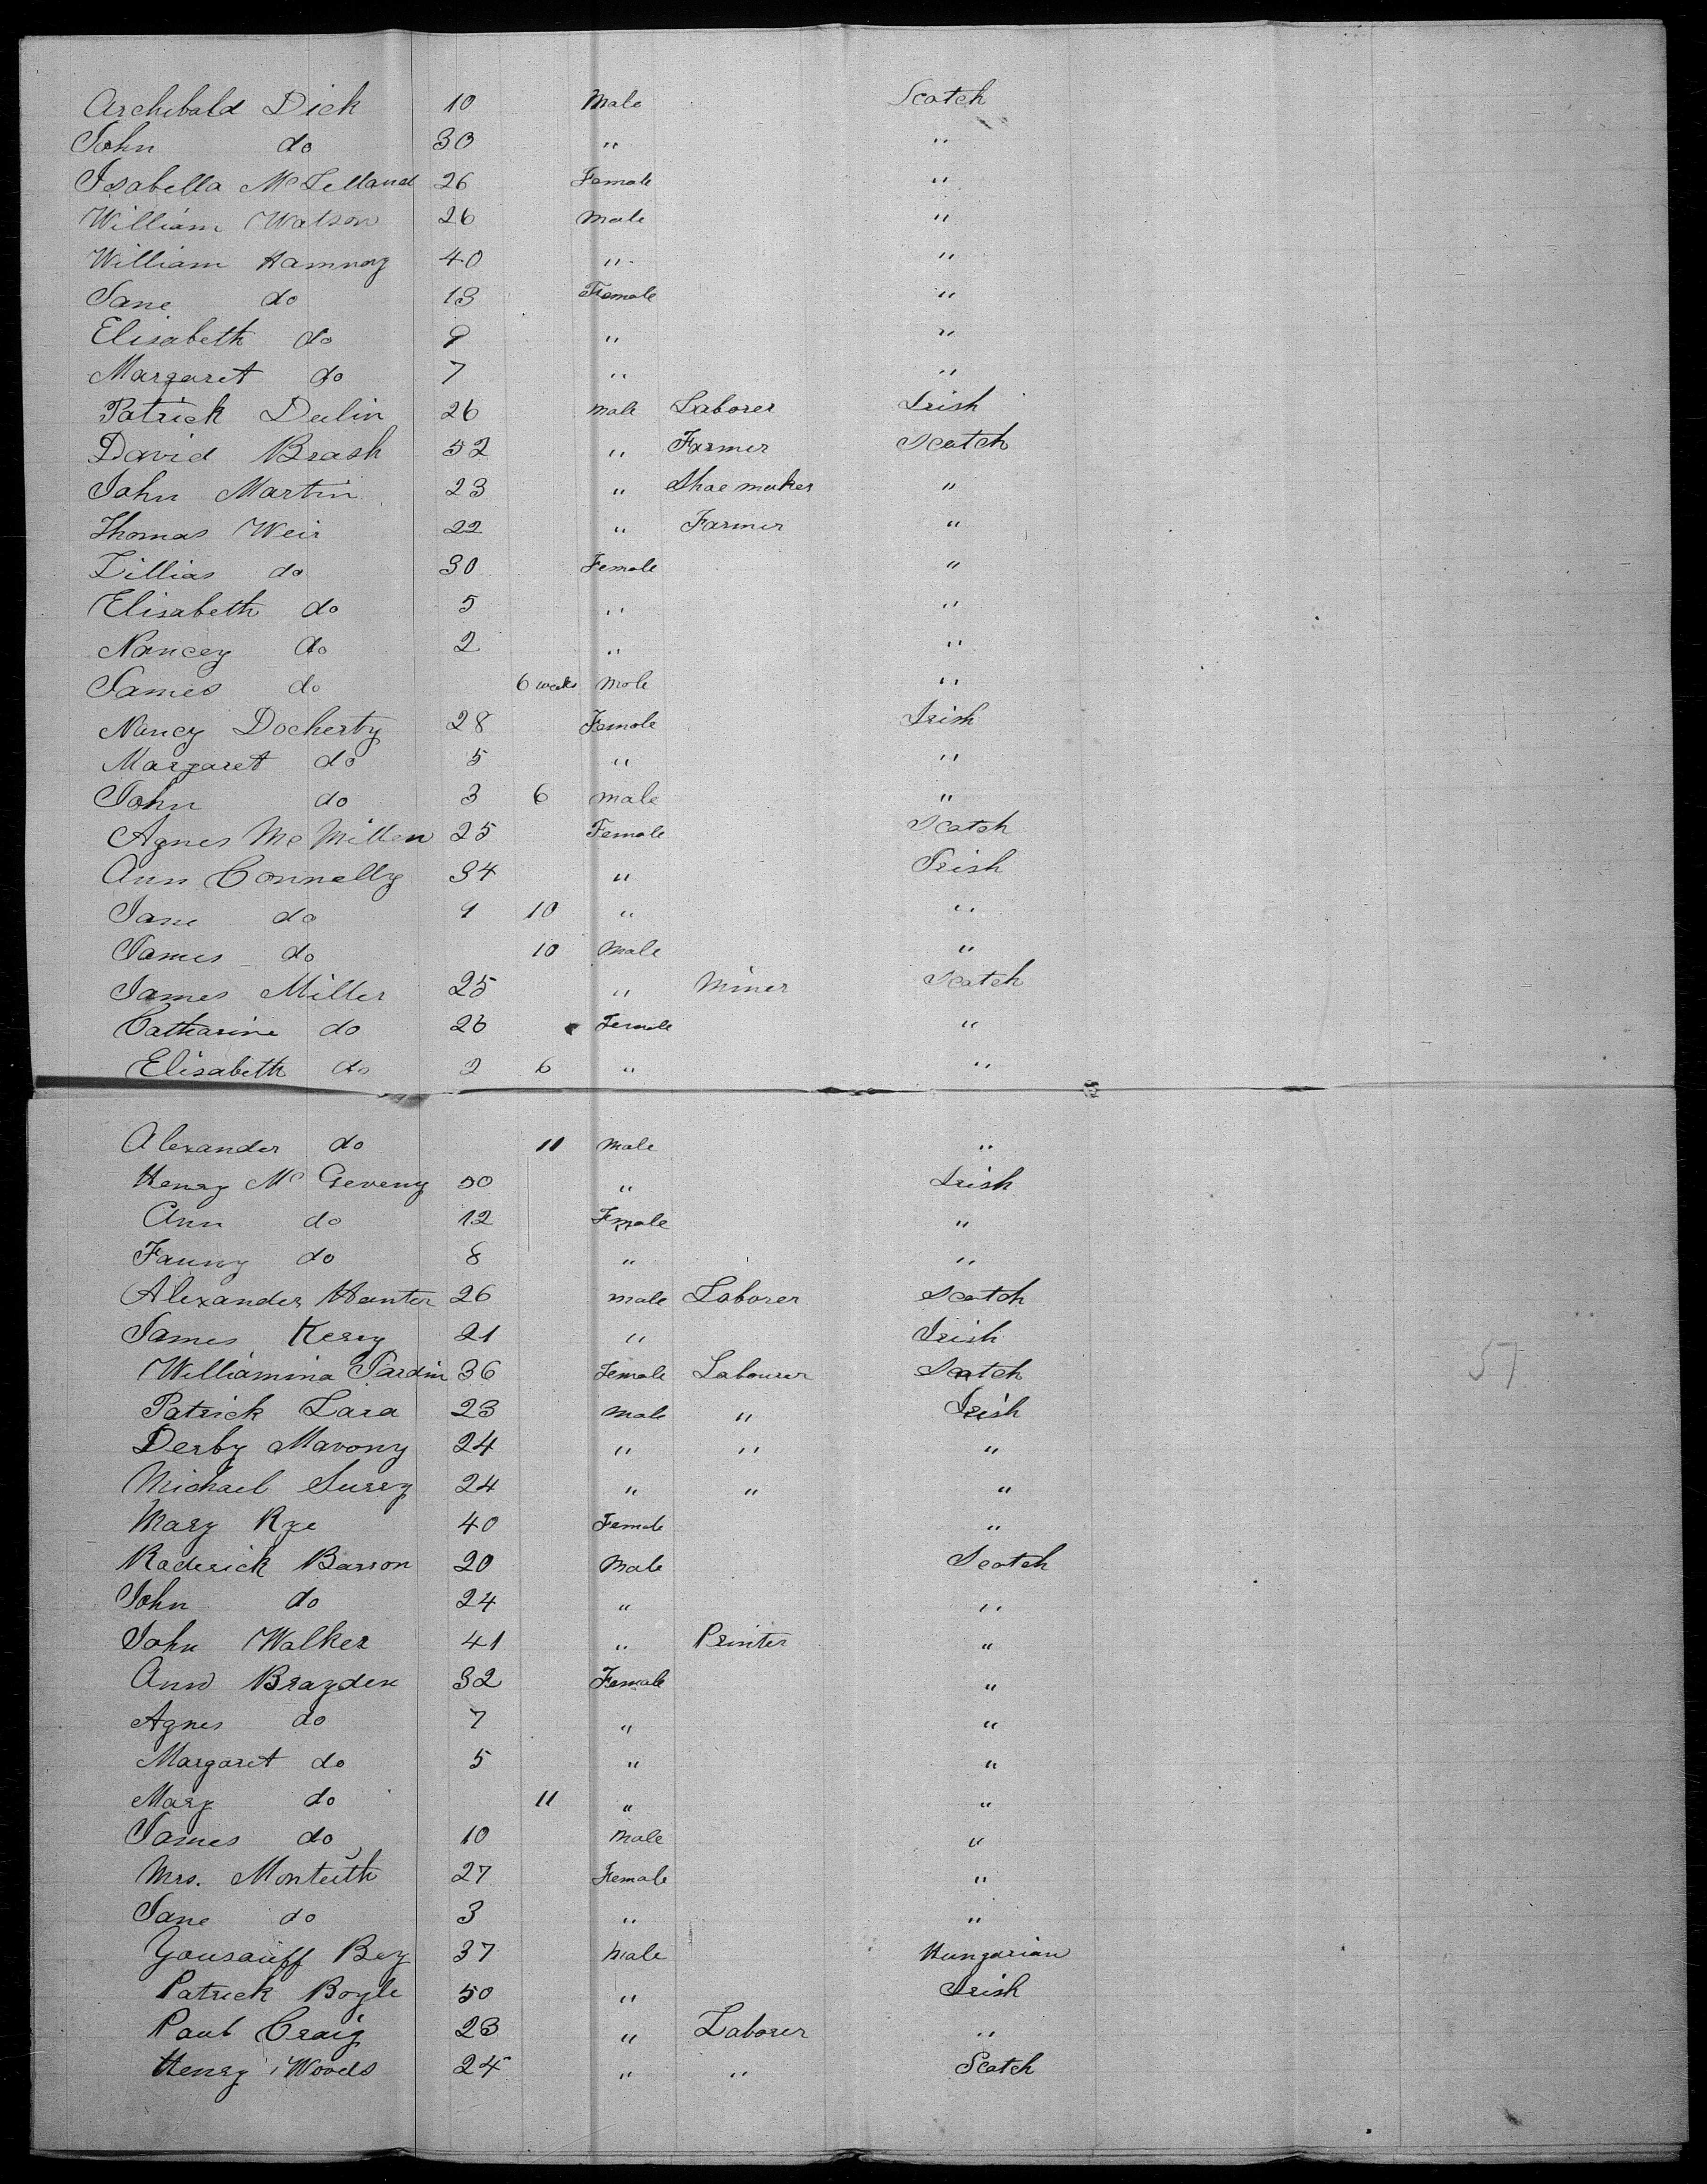 Archibald Dick 10 Male Scotch
John do 30 " "
Isabella McLelland 26 Female "
William Watson 26 Male "
William Hamnay 40 " "
Jane do 13 Female "
Elisabeth do 9 " "
Margaret do 7 " "
Patrick Deelin 26 male Laborer Irish
David Brash 52 " Farmer Scotch
John Martin 23 " Shoe maker "
Thomas Weir 22 " Farmer "
Lillias do 30 Female "
Elisabeth do 5 " "
Nancey do 2 " "
James do 6 weeks Male "
Nancy Docherty 28 Female Irish
Margaret do 5 " "
John do 3 6 male "
Agnes McMillen 25 Female Scotch
Ann Connelly 34 " Irish
Jane do 9 10 " "
James do 10 Male "
James Miller 25 " Miner Scotch
Catharine do 26 Female "
Elisabeth do 2 6 " "
Alexander do 11 Male "
Henry McGeveny 50 " Irish
Ann do 12 Female "
Fanny do 8 " "
Alexander Hunter 26 male Laborer Scotch
James Kerry 21 " Irish
Williamina Jardin 36 Female Labourer Scotch
Patrick Lara 23 Male " Irish
Derby Mavony 24 " " "
Michael Surry 24 " " "
Mary Rye 40 Female "
Roderick Barron 20 Male Scotch
John do 24 " "
John Walker 41 " Printer "
Ann Brayden 32 Female "
Agnes do 7 " "
Margaret do 5 " "
Mary do 11 " "
James do 10 Male "
Mrs. Monteith 27 Female "
Jane do 3 " "
Yousauff Bey 37 Male Hungarian
Patrick Boyle 50 " Irish
Paul Craig 23 " Laborer "
Henry Woods 24 " " Scotch
57